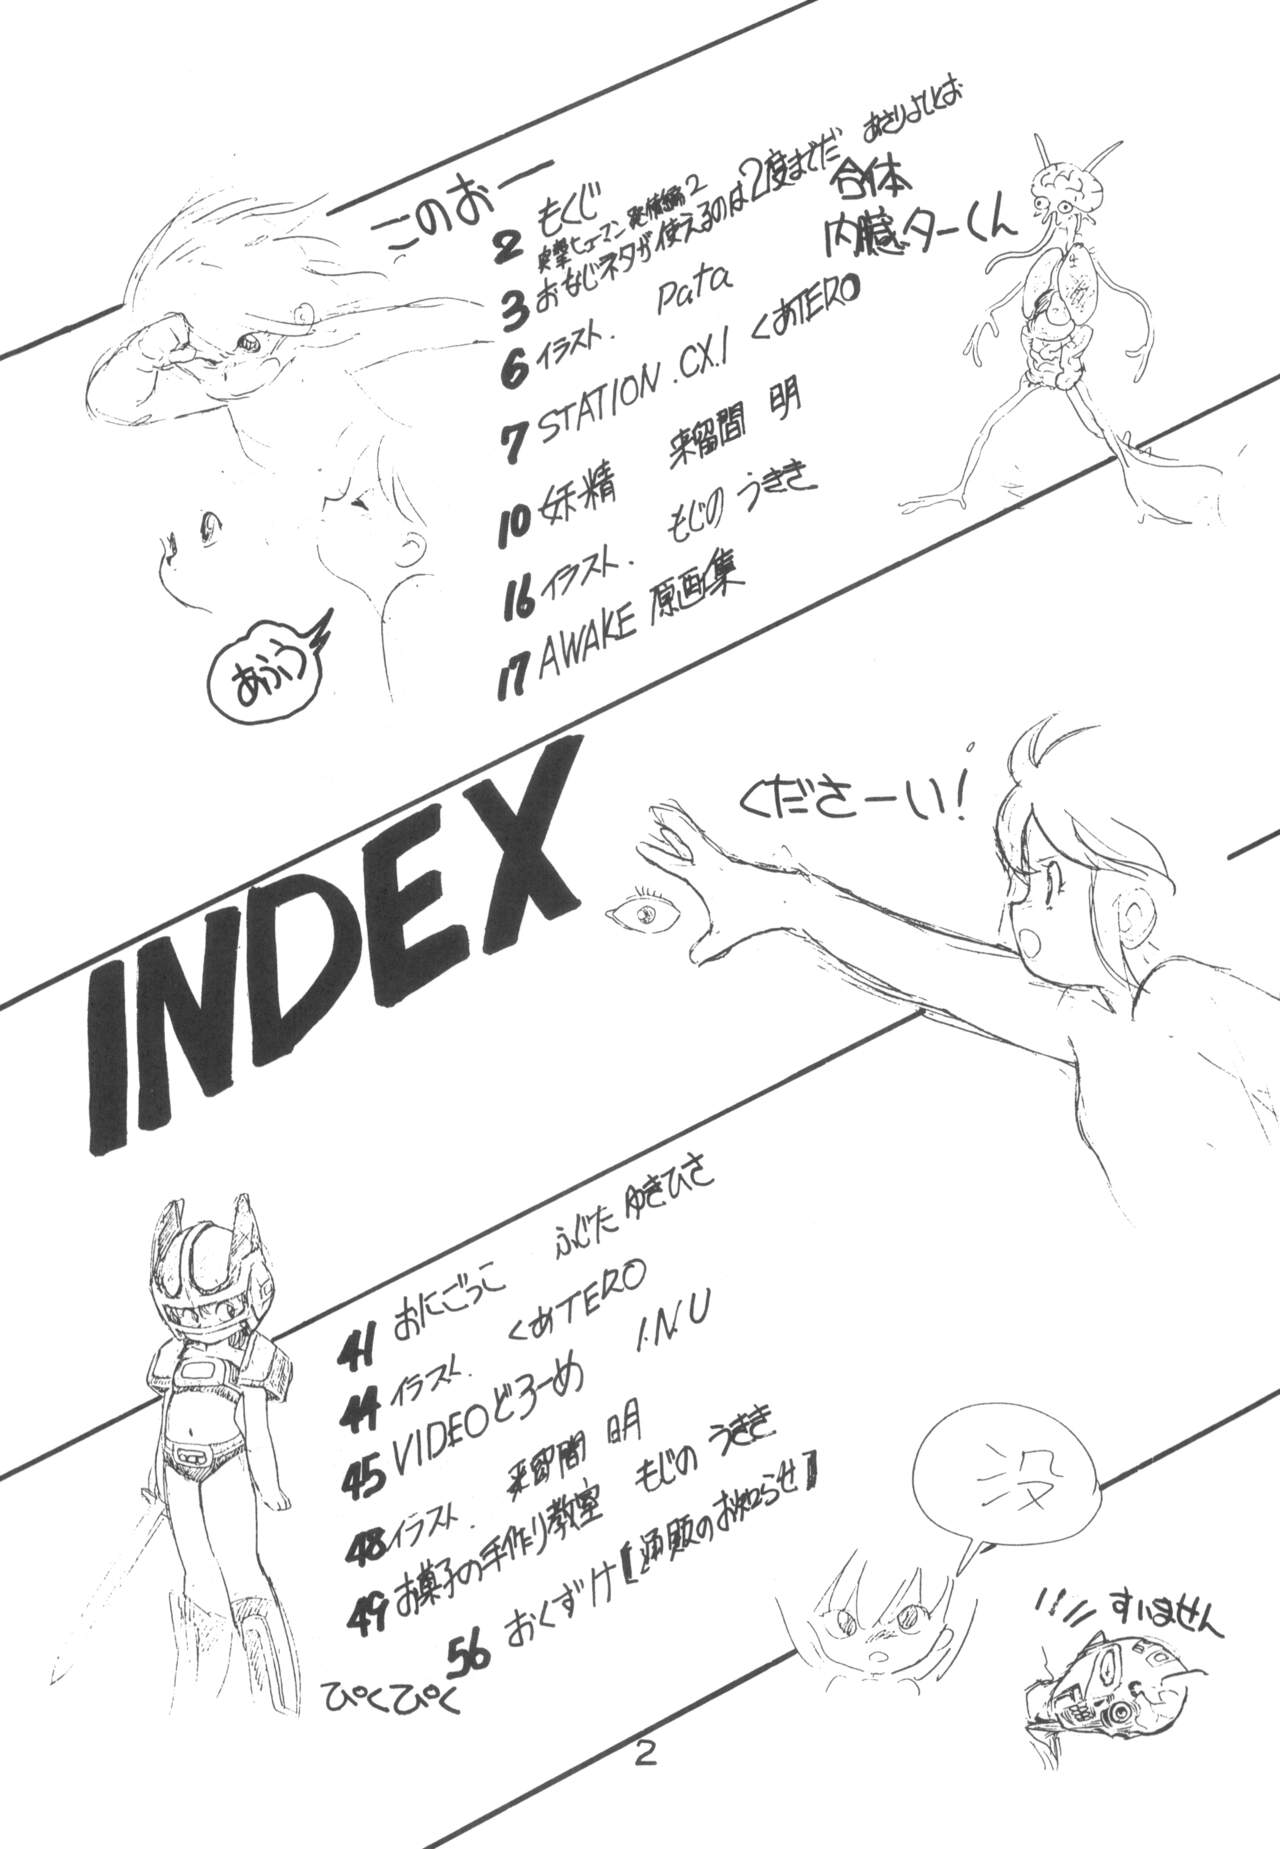 このおー
2 もくじ
突撃ヒューマン発値編2
3 おなじネタが使えるのは2度までだ あさりよしとお
合体
内臓ターくん
6 イラスト. Pata
7 STATION.CX.1 くあTERO
10 妖精 来留間 明
16 イラスト. もじの うきき
17 AWAKE 原画集
あふう
INDEX
くださーい!
41 おにごっこ ふじた ゆきひさ
44 イラスト. くあTERO
45 VIDEOどろーめ I.N.U
48 イラスト. 来留間 明
49 お菓子の手作り教室 もじの うきき
56 おくずけ【通販のお知らせ】
ぴくぴく
没
すいません
2